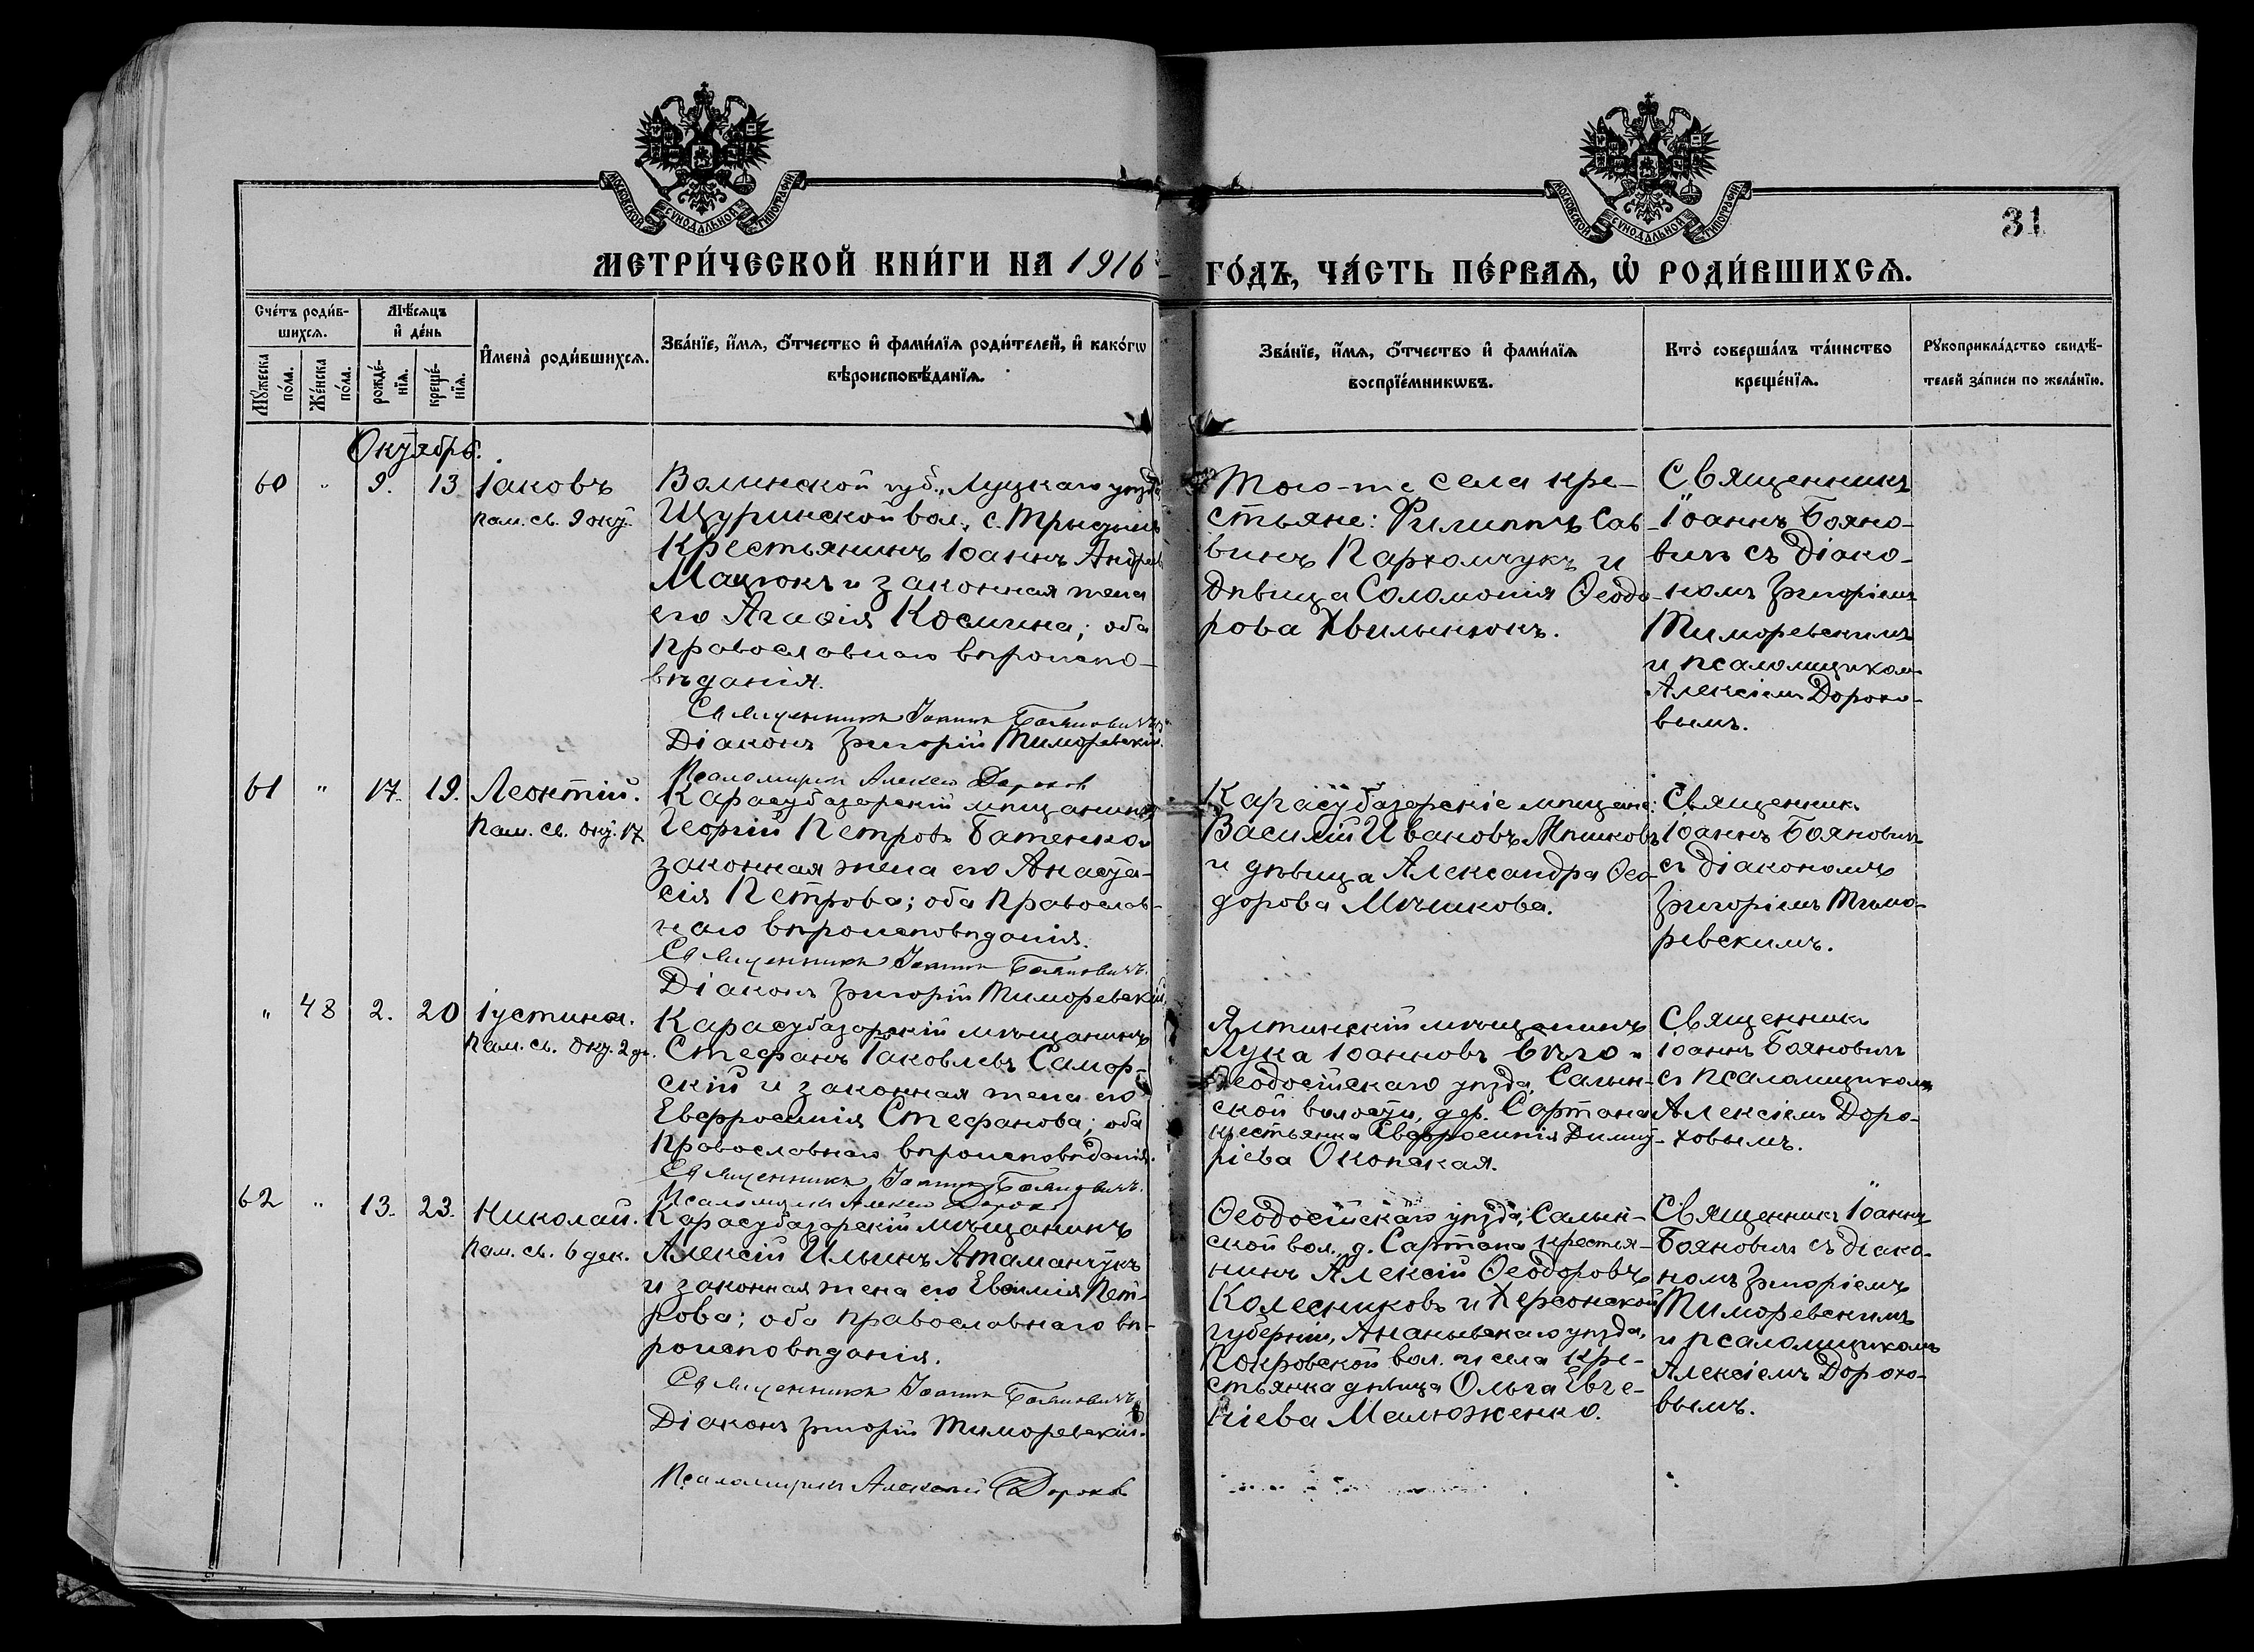 МОСКОВСКОЙ СѴНОДАЛЬНОЙ ТИПОГРАФІИ
МОСКОВСКОЙ СѴНОДАЛЬНОЙ ТИПОГРАФІИ
31
МЕТРИ́ЧЕСКОЙ КНИ́ГИ НА 1916
ГО́ДЪ, ЧА́СТЬ ПЕ́РВАѦ, Ѽ РОДИ́ВШИХСѦ.
Сче́тъ роди́в-
шихся.
Мꙋ́жеска
по́ла.
Же́нска
по́ла.
Мѣ́сяцъ
и҆ де́нь
рожде́-
нїѧ.
креще́-
нїѧ.
И҆мена̀ роди́вшихсѧ.
Зва́нїе, и҆́мѧ, ѻ҆́тчество и҆ фами́лїѧ роди́телей, и҆ како́гѡ
вѣроисповѣ́данїѧ.
Зва́нїе, и҆́мѧ, ѻ҆́тчество и҆ фами́лїѧ
воспрїе́мникѡвъ.
Кто̀ соверша́лъ та́инство
креще́нїѧ.
Рꙋкоприкла́дство свидѣ́-
телей за́писи по жела́нїю.
Октябрь.
60 " 9. 13 Іаковъ
пам. св. 9 окт.
Волинской губ., Луцкаго уѣзда
Щуринской вол., с.
крестьянинъ Іоаннъ Андреев
Мацюкъ и законная жена
его Агафія Космина; оба
православнаго вѣроиспо-
вѣданія.
Священникъ Іоаннъ Бояновичъ
Діаконъ Григорій Тиморевскій.
Псаломщикъ Алексей Дорохов
Того-же села кре-
стьяне: Филиппъ Сав-
винъ Пархомчукъ и
дѣвица Соломонія Ѳеодо-
рова Хвильинюкъ.
Священникъ
Іоаннъ Бояно-
вичъ съ діако-
номъ Григоріемъ
Тиморевскимъ
и псаломщиком
Алексіемъ Дорохо-
вымъ.
61 " 17. 19. Леонтій.
Пам. св. окт. 17
Карасубазарскій мѣщанинъ
Георгій Петровъ Батенко и
законная жена его Анаста-
сія Петрова; оба православ-
наго вѣроисповѣданія.
Священникъ Іоаннъ Бояновичъ.
Діаконъ Григорій Тиморевскій
Карасубазарскіе мѣщане:
Василій Ивановъ Мѣшковъ
и дѣвица Александра Ѳео-
дорова Мѣшкова.
Священникъ
Іоаннъ Бояновичъ
съ діакономъ
Григоріемъ Тимо-
ревскимъ.
" 48 2. 20 Іустина.
Пам. св. окт. 2 дн.
Карасубазарскій мѣщанинъ
Стефанъ Іаковлевъ Самор-
скій и законная жена его
Евфросинія Стефанова; оба
православнаго вѣроисповѣданія.
Священникъ Іоаннъ Бояновичъ.
Псаломщикъ Алексей Дорохов
Ялтинскій мѣщанинъ
Лука Іоанновъ и
Ѳеодосійскаго уѣзда, Салын-
ской волости, дер. Сартана
крестьянка Евфросинія Димит-
ріева Оконская.
Священникъ
Іоаннъ Бояновичъ
съ псаломщикомъ
Алексіемъ Доро-
ховымъ.
62 " 13. 23. Николай.
Пам. св. 6 дек.
Карасубазарскій мѣщанинъ
Алексій Ильинъ Атаманчукъ
и законная жена его Евѳимія Пет-
рова; оба православнаго вѣ-
роисповѣданія.
Священникъ Іоаннъ Бояновичъ
Діаконъ Григорій Тиморевскій.
Псаломщикъ Алексей Дорохов
Ѳеодосійскаго уѣзда, Салын-
ской вол., д. Сартана крестья-
нинъ Алексій Ѳеодоровъ
Колесниковъ и Херсонской
губерніи, Ананьевскаго уѣзда,
Покровской вол. и села кре-
стьянка дѣвица Ольга Евге-
ніева Малюженко.
Священникъ Іоаннъ
Бояновичъ съ діако-
номъ Григоріемъ
Тиморевскимъ
и псаломщикомъ
Алексіемъ Дорохо-
вымъ.